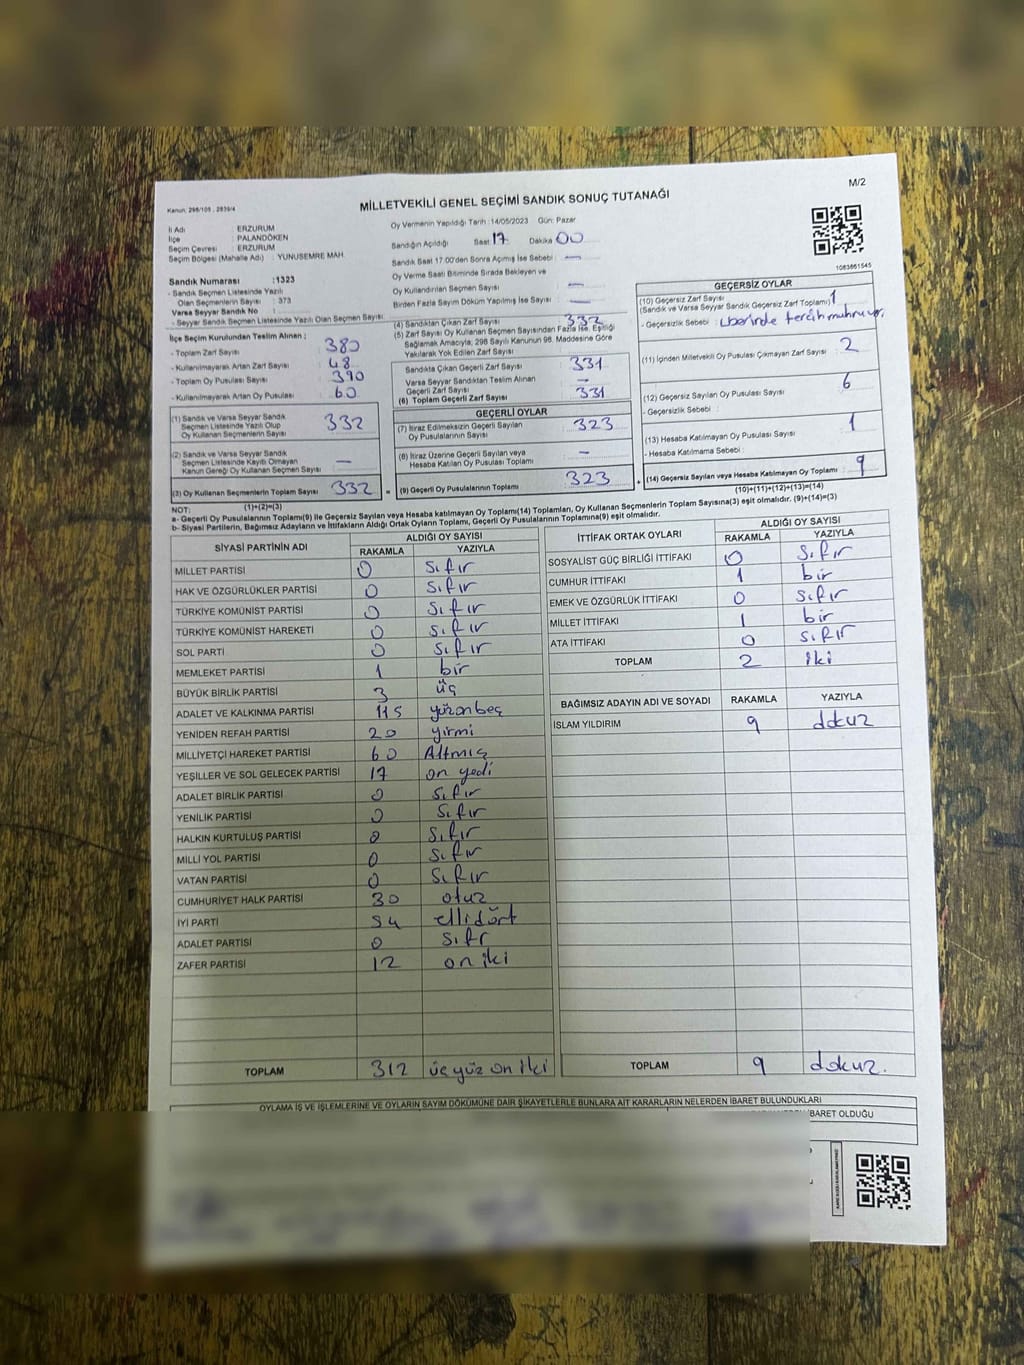 M/2
Kanun: 298/105 , 2839/4
MİLLETVEKİLİ GENEL SEÇİMİ SANDIK SONUÇ TUTANAĞI
İl Adı : ERZURUM
İlçe : PALANDÖKEN
Seçim Çevresi : ERZURUM
Seçim Bölgesi (Mahalle Adı) : YUNUSEMRE MAH.
Oy Vermenin Yapıldığı Tarih :14/05/2023 Gün: Pazar
Sandığın Açıldığı Saat 17 Dakika 00
Sandık Saat 17:00'den Sonra Açılmış İse Sebebi : —
Oy Verme Saati Bitiminde Sırada Bekleyen ve
Oy Kullandırılan Seçmen Sayısı : —
Birden Fazla Sayım Döküm Yapılmış İse Sayısı : —
1083861545
Sandık Numarası :1323
- Sandık Seçmen Listesinde Yazılı
Olan Seçmenlerin Sayısı : 373
Varsa Seyyar Sandık No :
- Seyyar Sandık Seçmen Listesinde Yazılı Olan Seçmen Sayısı:
İlçe Seçim Kurulundan Teslim Alınan ;
- Toplam Zarf Sayısı : 380
- Kullanılmayarak Artan Zarf Sayısı : 48
- Toplam Oy Pusulası Sayısı : 390
- Kullanılmayarak Artan Oy Pusulası : 60
(1) Sandık ve Varsa Seyyar Sandık
Seçmen Listesinde Yazılı Olup
Oy Kullanan Seçmenlerin Sayısı : 332
(2) Sandık ve Varsa Seyyar Sandık
Seçmen Listesinde Kayıtlı Olmayan
Kanun Gereği Oy Kullanan Seçmen Sayısı : —
(3) Oy Kullanan Seçmenlerin Toplam Sayısı : 332
(1)+(2)=(3)
(4) Sandıktan Çıkan Zarf Sayısı : 332
(5) Zarf Sayısı Oy Kullanan Seçmen Sayısından Fazla İse, Eşitliği
Sağlamak Amacıyla; 298 Sayılı Kanunun 98. Maddesine Göre
Yakılarak Yok Edilen Zarf Sayısı :
Sandıkta Çıkan Geçerli Zarf Sayısı : 331
Varsa Seyyar Sandıktan Teslim Alınan
Geçerli Zarf Sayısı : —
(6) Toplam Geçerli Zarf Sayısı : 331
GEÇERLİ OYLAR
(7) İtiraz Edilmeksizin Geçerli Sayılan
Oy Pusulalarının Sayısı : 323
(8) İtiraz Üzerine Geçerli Sayılan veya
Hesaba Katılan Oy Pusulası Toplamı : —
= (9) Geçerli Oy Pusulalarının Toplamı : 323 +
GEÇERSİZ OYLAR
(10) Geçersiz Zarf Sayısı
(Sandık ve Varsa Seyyar Sandık Geçersiz Zarf Toplamı) : 1
- Geçersizlik Sebebi : üzerinde tercih mührü var.
(11) İçinden Milletvekili Oy Pusulası Çıkmayan Zarf Sayısı : 2
(12) Geçersiz Sayılan Oy Pusulası Sayısı : 6
- Geçersizlik Sebebi :
(13) Hesaba Katılmayan Oy Pusulası Sayısı : 1
- Hesaba Katılmama Sebebi :
(14) Geçersiz Sayılan veya Hesaba Katılmayan Oy Toplamı : 9
(10)+(11)+(12)+(13)=(14)
NOT:
a- Geçerli Oy Pusulalarının Toplamı(9) ile Geçersiz Sayılan veya Hesaba katılmayan Oy Toplamı(14) Toplamları, Oy Kullanan Seçmenlerin Toplam Sayısına(3) eşit olmalıdır. (9)+(14)=(3)
b- Siyasi Partilerin, Bağımsız Adayların ve İttifakların Aldığı Ortak Oyların Toplamı, Geçerli Oy Pusulalarının Toplamına(9) eşit olmalıdır.
SİYASİ PARTİNİN ADI ALDIĞI OY SAYISI
RAKAMLA YAZIYLA
MİLLET PARTİSİ 0 Sıfır
HAK VE ÖZGÜRLÜKLER PARTİSİ 0 Sıfır
TÜRKİYE KOMÜNİST PARTİSİ 0 Sıfır
TÜRKİYE KOMÜNİST HAREKETİ 0 Sıfır
SOL PARTİ 0 Sıfır
MEMLEKET PARTİSİ 1 bir
BÜYÜK BİRLİK PARTİSİ 3 üç
ADALET VE KALKINMA PARTİSİ 115 yüzonbeş
YENİDEN REFAH PARTİSİ 20 yirmi
MİLLİYETÇİ HAREKET PARTİSİ 60 Altmış
YEŞİLLER VE SOL GELECEK PARTİSİ 17 on yedi
ADALET BİRLİK PARTİSİ 0 Sıfır
YENİLİK PARTİSİ 0 Sıfır
HALKIN KURTULUŞ PARTİSİ 0 Sıfır
MİLLİ YOL PARTİSİ 0 Sıfır
VATAN PARTİSİ 0 Sıfır
CUMHURİYET HALK PARTİSİ 30 otuz
İYİ PARTİ 54 ellidört
ADALET PARTİSİ 0 Sıfr
ZAFER PARTİSİ 12 on iki
TOPLAM 312 üçyüz on iki
İTTİFAK ORTAK OYLARI ALDIĞI OY SAYISI
RAKAMLA YAZIYLA
SOSYALİST GÜÇ BİRLİĞİ İTTİFAKI 0 Sıfır
CUMHUR İTTİFAKI 1 bir
EMEK VE ÖZGÜRLÜK İTTİFAKI 0 Sıfır
MİLLET İTTİFAKI 1 bir
ATA İTTİFAKI 0 Sıfır
TOPLAM 2 iki
BAĞIMSIZ ADAYIN ADI VE SOYADI RAKAMLA YAZIYLA
İSLAM YILDIRIM 9 dokuz
TOPLAM 9 dokuz.
OYLAMA İŞ VE İŞLEMLERİNE VE OYLARIN SAYIM DÖKÜMÜNE DAİR ŞİKAYETLERLE BUNLARA AİT KARARLARIN NELERDEN İBARET BULUNDUKLARI
İBARET OLDUĞU